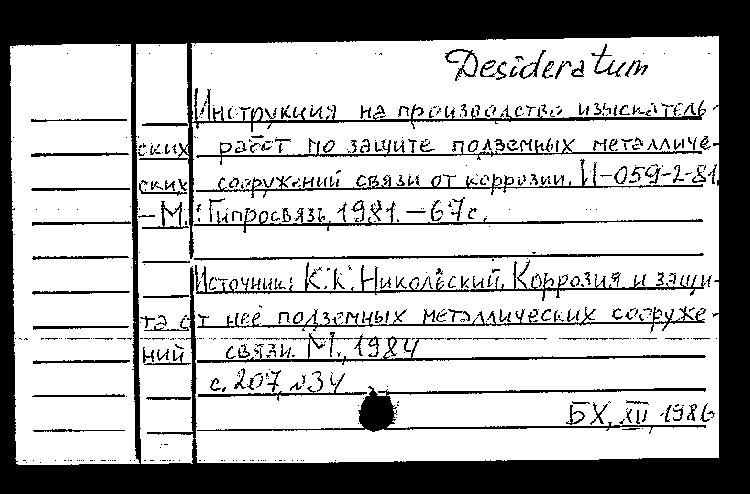 Desideratum
Инструкция на производство изыскатель-
ских работ по защите подземных металличе-
ских сооружений связи от коррозии. И-059-2-81.
— М.: Гипросвязь, 1981. — 67 с.
Источник: К.К. Никольский. Коррозия и защи-
та от неё подземных металлических сооруже-
ний связи. М., 1984
с. 207, №34
БХ, XII, 1986